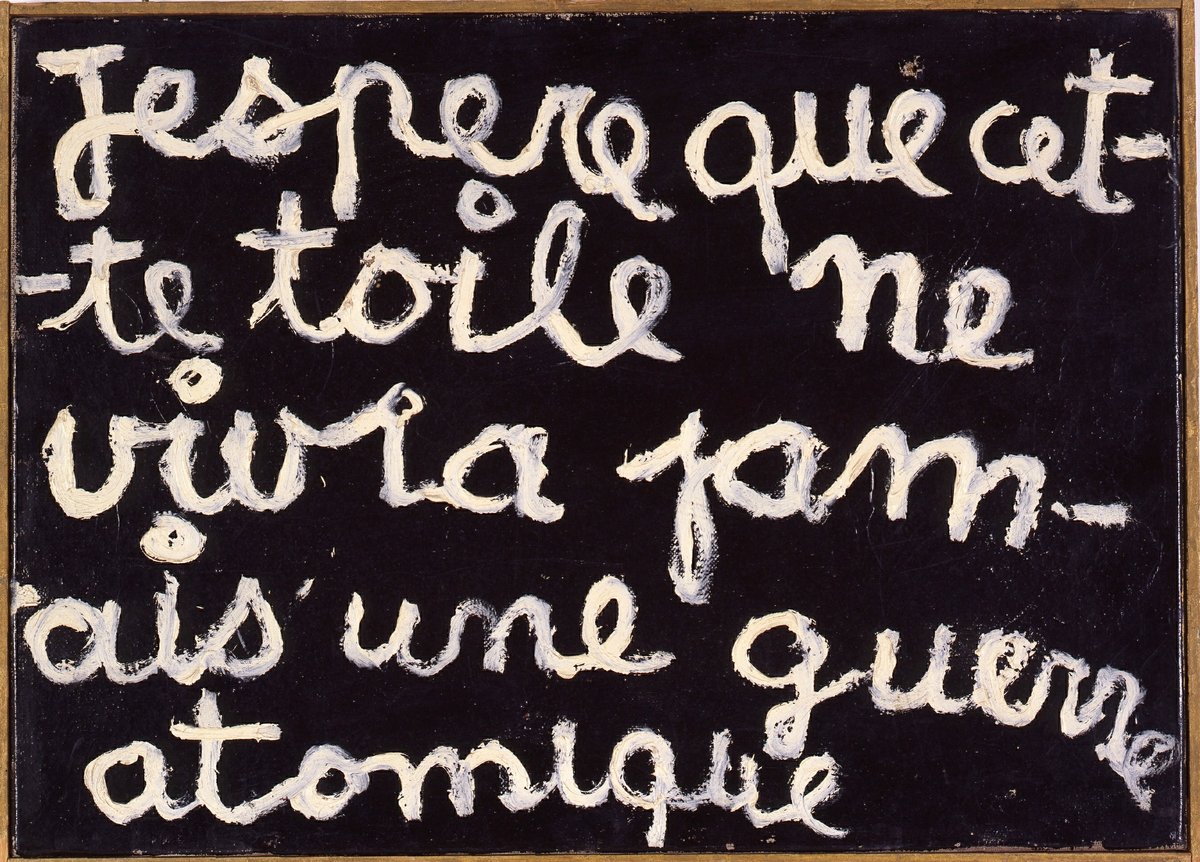 Jespere que cet-
-te toile ne
vivra jam-
ais une guerre
atomique